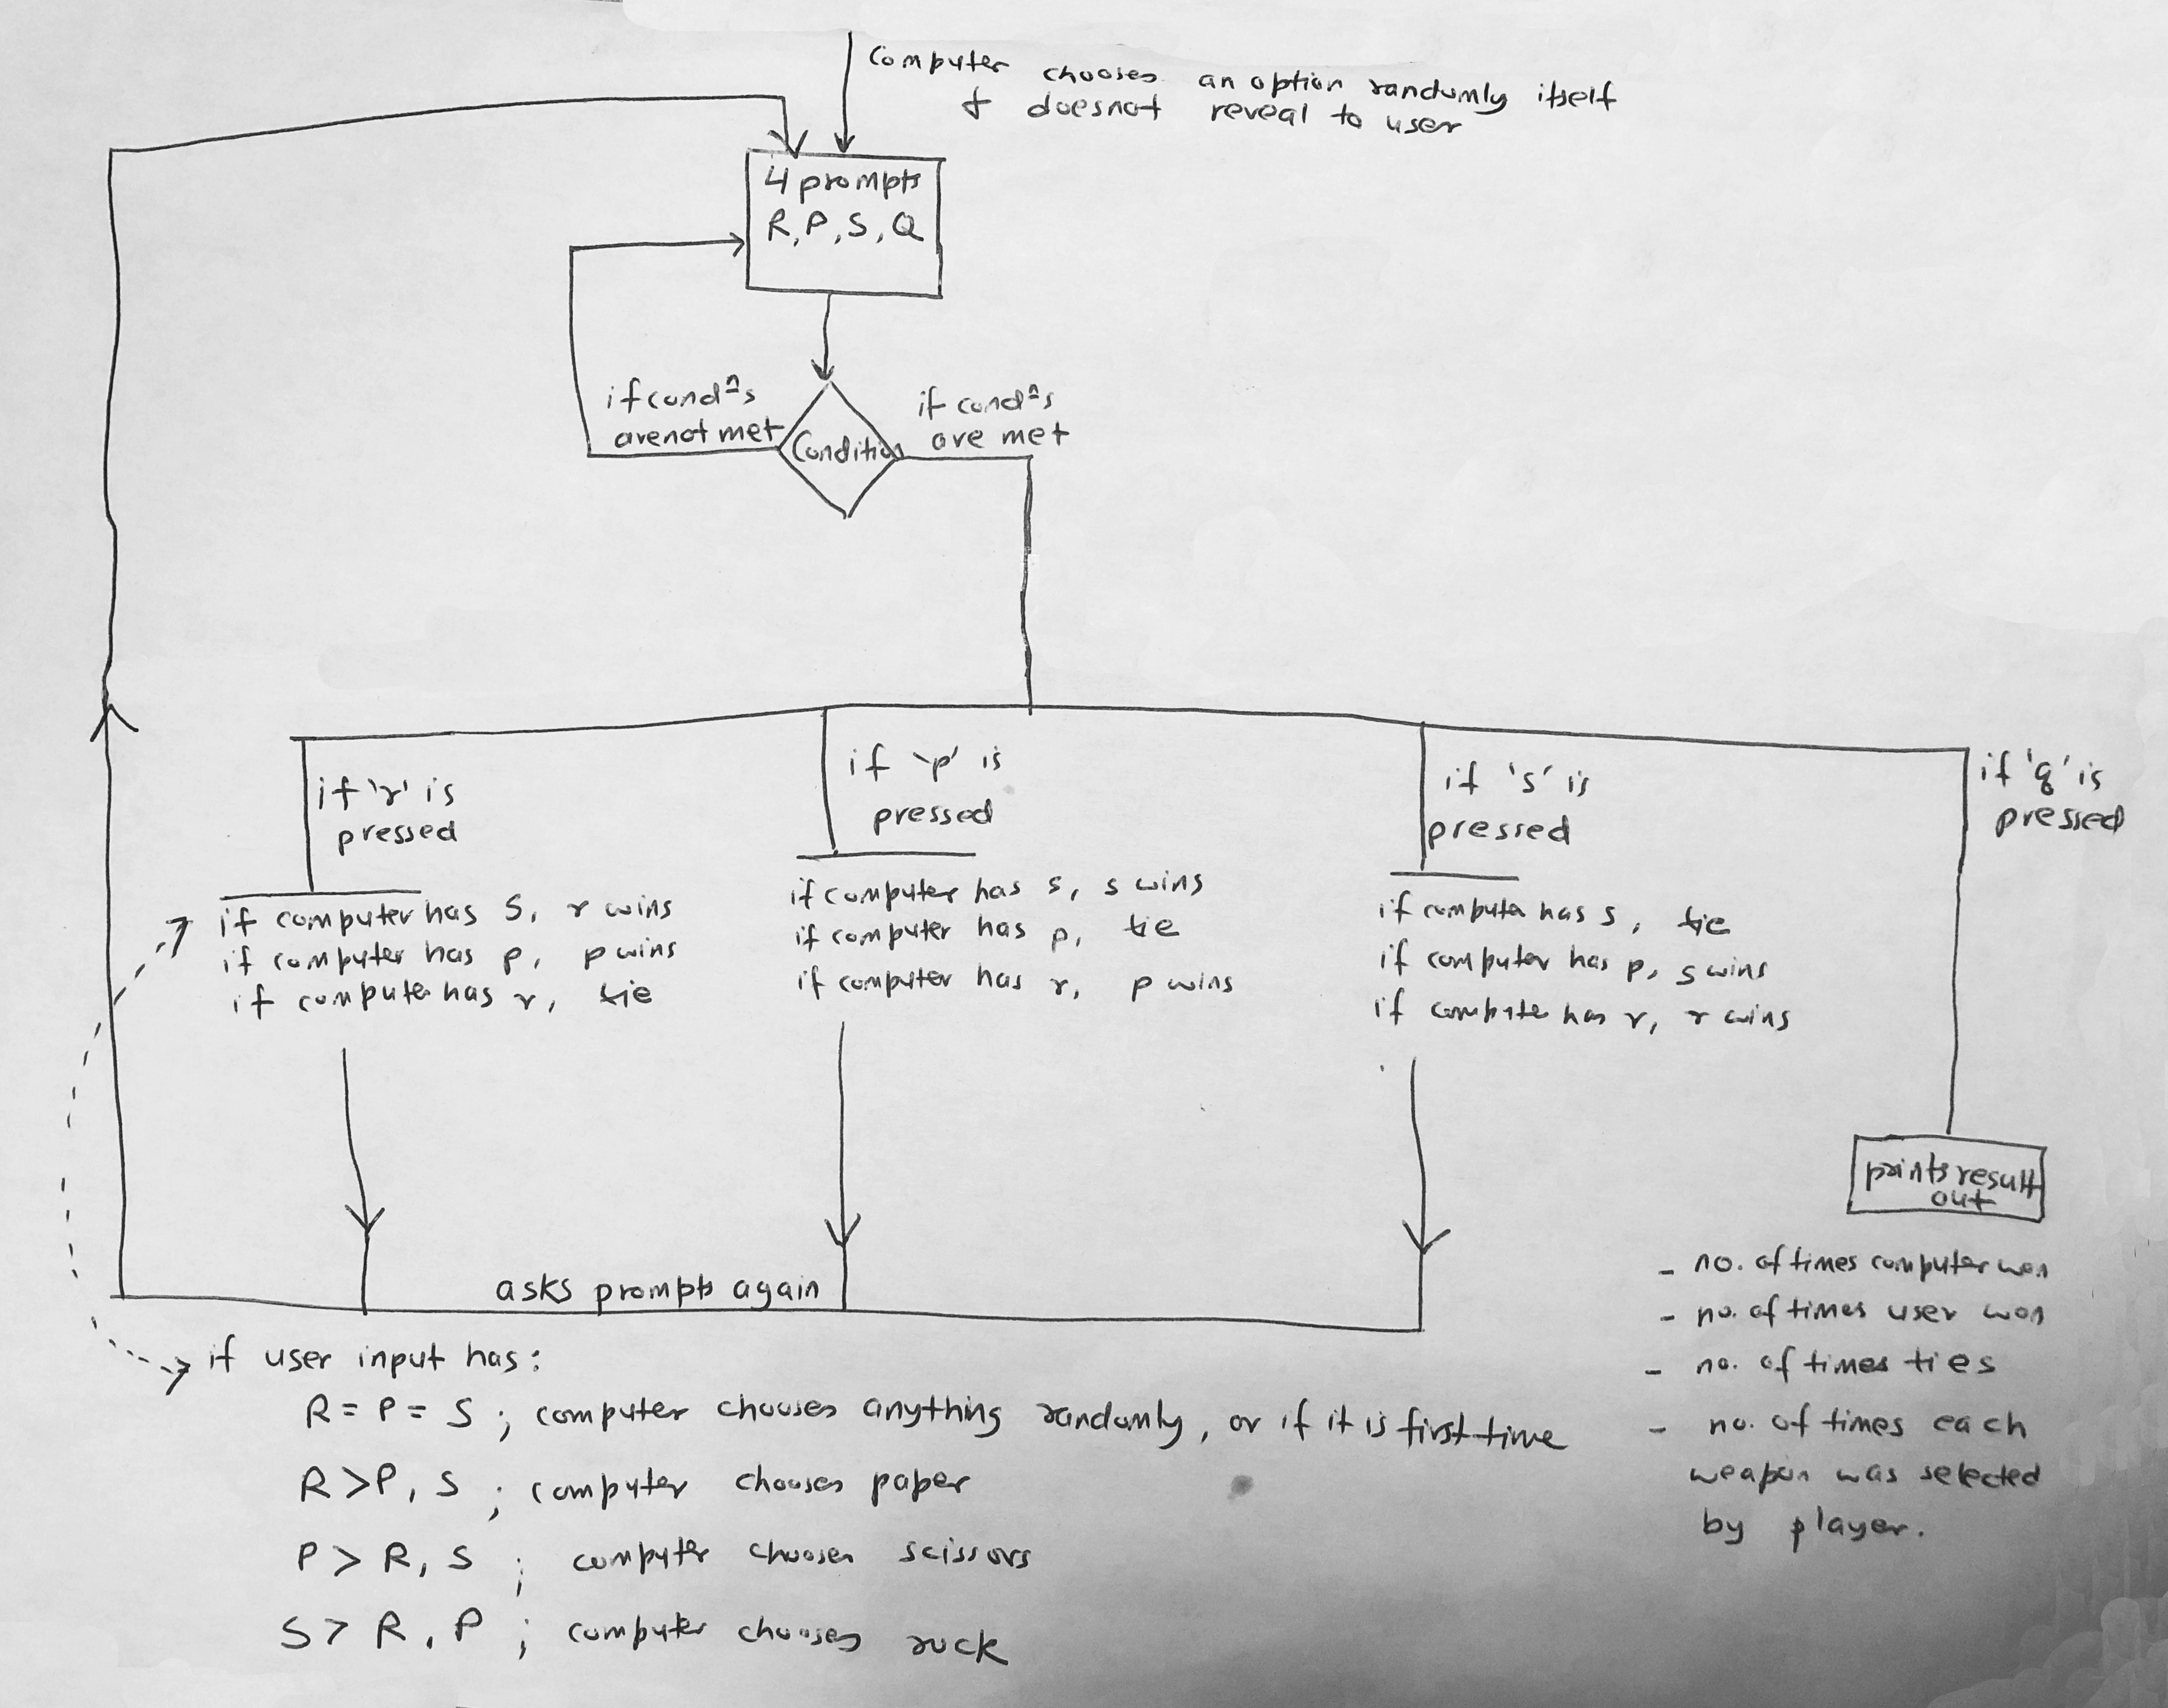 Computer chooses an option randomly itself
& doesnot reveal to user
4 prompts
R, P, S, Q
if condⁿs
are not met
Condition
if condⁿs
are met
if 'r' is
pressed
if computer has S, r wins
if computer has p, p wins
if computer has r, tie
if 'p' is
pressed
if computer has s, s wins
if computer has p, tie
if computer has r, p wins
if 's' is
pressed
if computer has s, tie
if computer has p, s wins
if computer has r, r wins
if 'q' is
pressed
prints result
out
- no. of times computer won
- no. of times user won
- no. of times ties
- no. of times each
weapon was selected
by player.
asks prompts again
if user input has:
R = P = S ; computer chooses anything randomly, or if it is first time
R > P, S ; computer chooses paper
P > R, S ; computer chooses scissors
S > R, P ; computer chooses rock